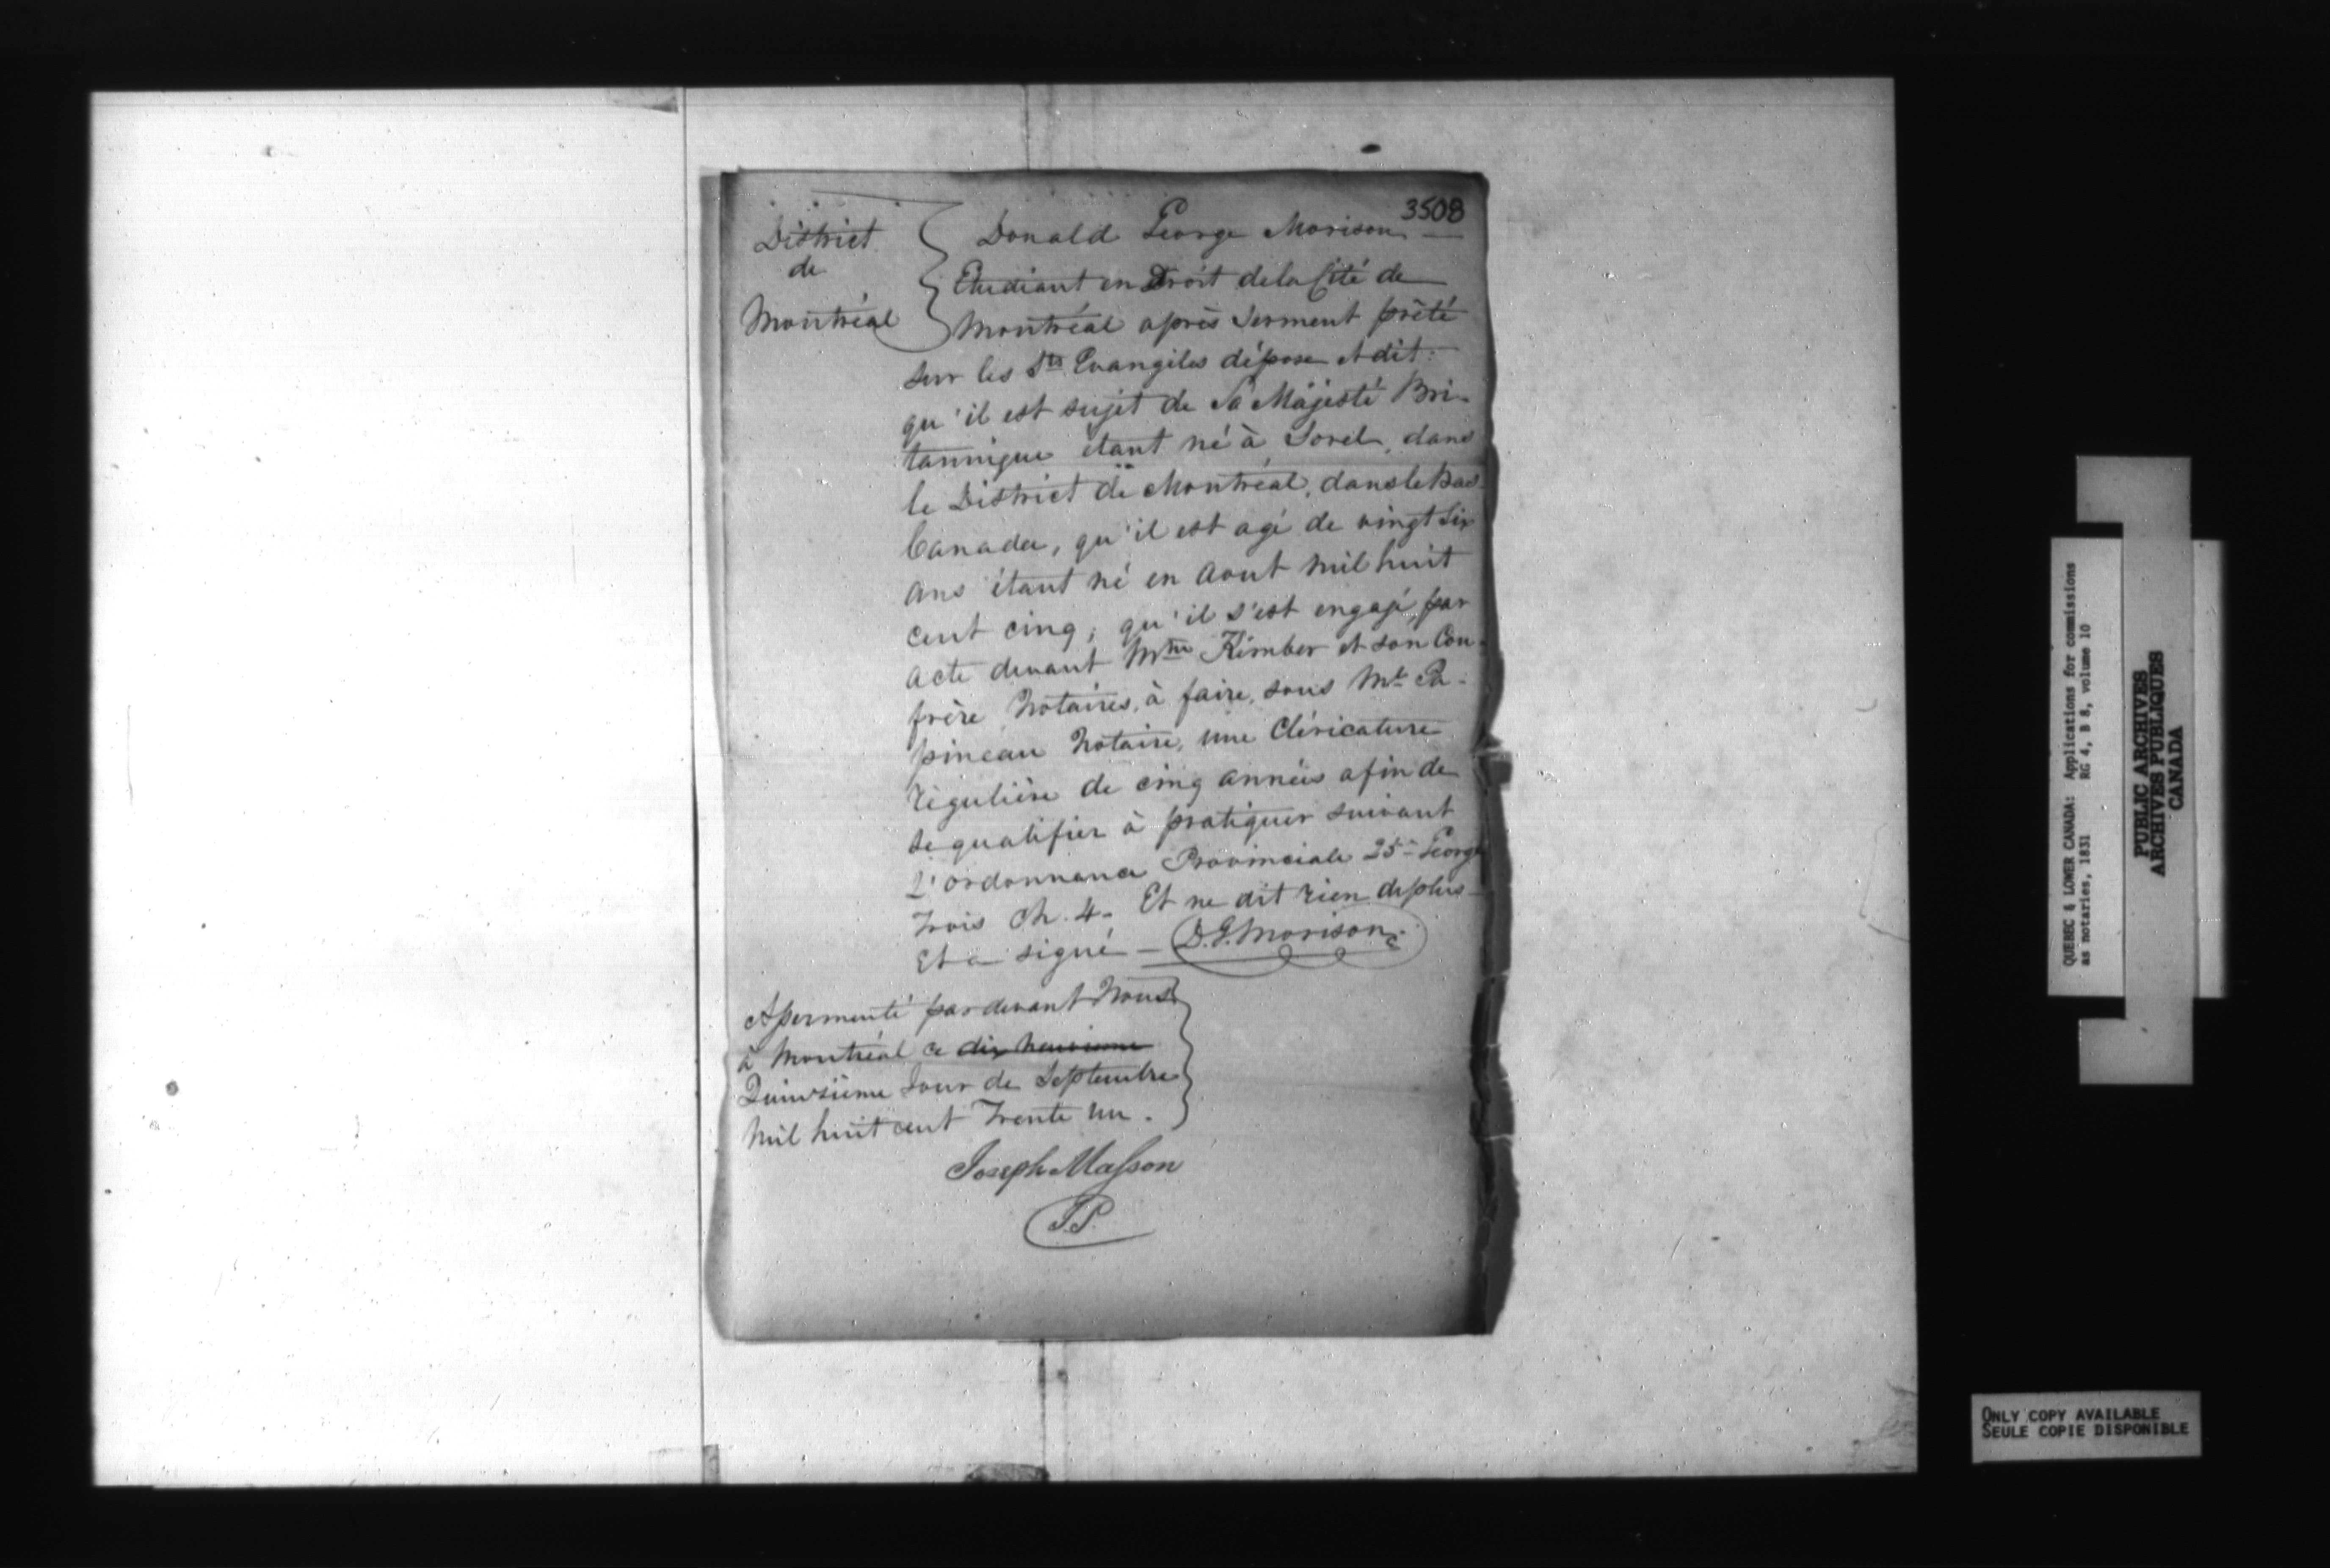 3508
District
de
Montréal
Donald George Morison
Etudiant en Droit de la Cité de
Montréal après Serment prêté
sur les Sts. Evangiles dépose et dit:
qu'il est sujet de Sa Majesté Bri-
tannique étant né à Sorel, dans
le District de Montréal, dans le Bas
Canada, qu'il est agé de vingt six
ans étant né en Aout mil huit
cent cinq; qu'il s'est engagé, par
acte devant Mtre Kimber et son Con-
frère Notaires, à faire, sous Mr. Pa-
pineau Notaire, une Cléricature
régulière de cinq années afin de
se qualifier à pratiquer suivant
l'ordonnance Provinciale 25e George
Trois Ch. 4. Et ne dit rien de plus
Et a signé — D. G. Morison
Assermenté pardevant Nous
à Montréal ce dix neuvieme
Quinzième Jour de Septembre
Mil huit cent Trente un.
Joseph Masson
J.P.
QUEBEC & LOWER CANADA: Applications for commissions
as notaries, 1831 RG 4, B 8, volume 10
PUBLIC ARCHIVES
ARCHIVES PUBLIQUES
CANADA
ONLY COPY AVAILABLE
SEULE COPIE DISPONIBLE